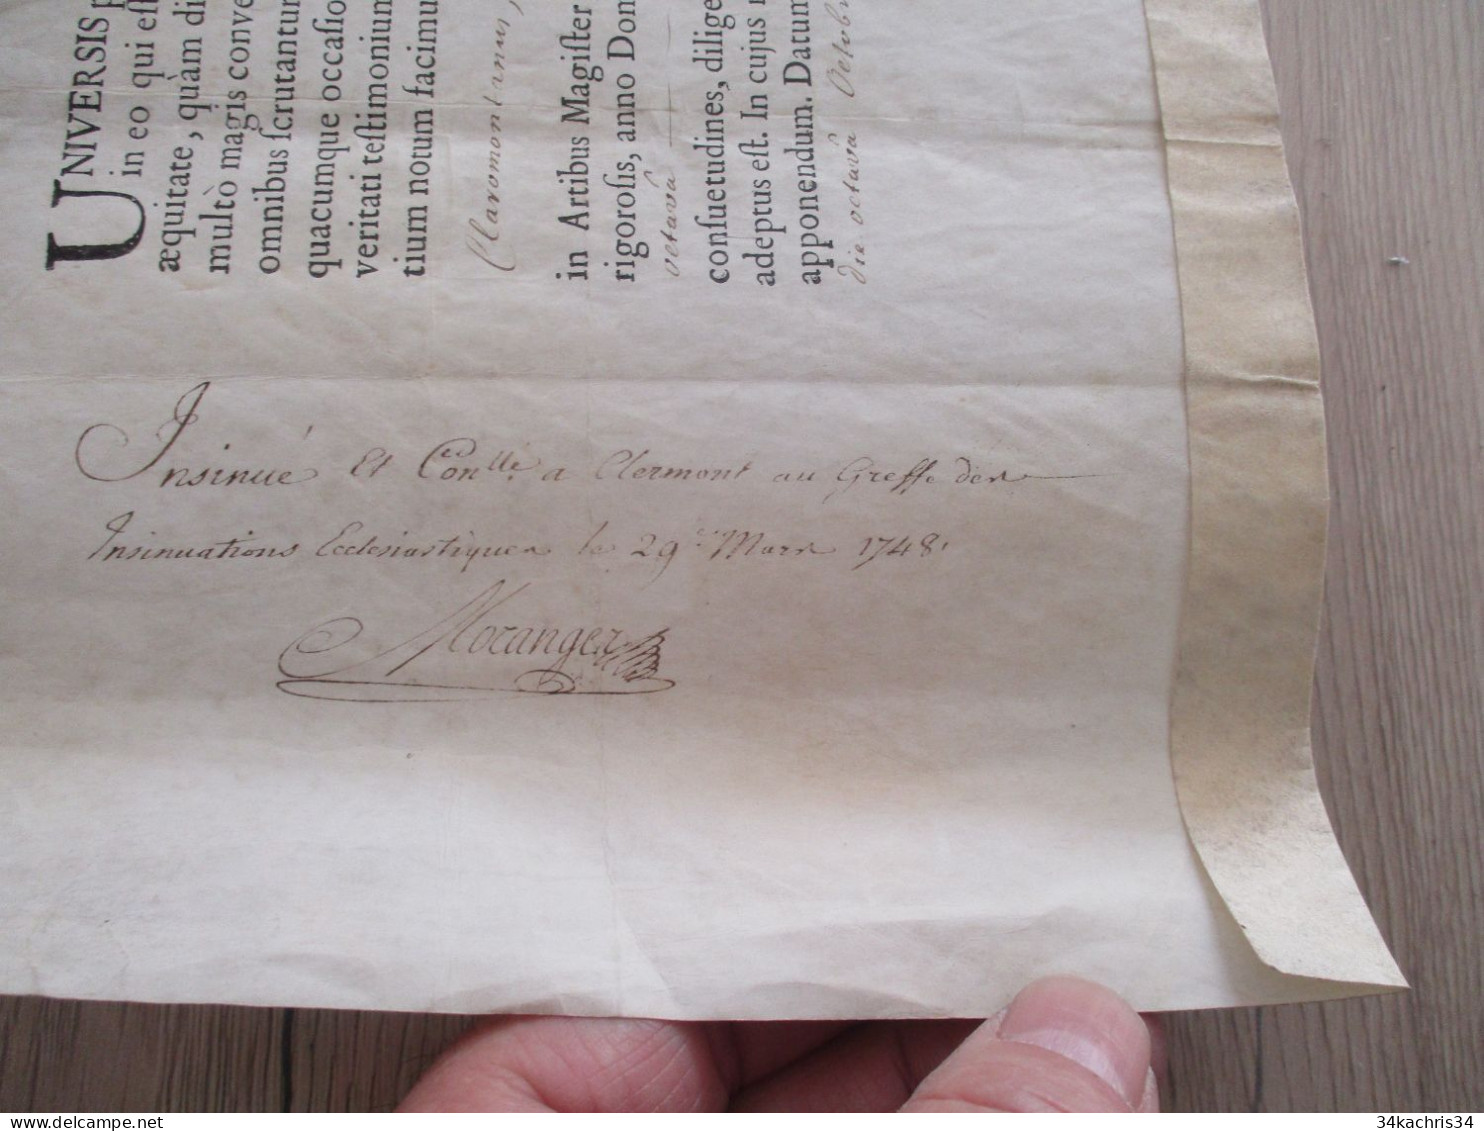 UNIVERSIS
in eo qui eſt
æquitate, quàm di
multò magis conve
omnibus ſcrutantur
quacumque occaſio
veritati teſtimonium
tium notum facimu
Claromontanus,
in Artibus Magiſter
rigoroſis, anno Dom
octavâ
conſuetudines, dilige
adeptus eſt. In cujus
apponendum. Datum
die octavâ Octobr
Insinué Et Con.llé a Clermont au Greffe des
Insinuations Ecclesiastiques le 29e Mars 1748.
Moranger
34kachris34